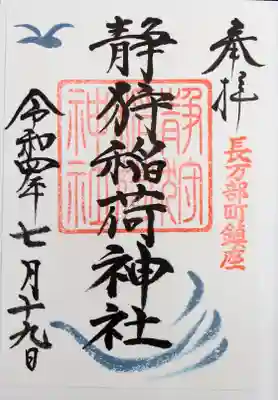 奉拝
長万部町鎮座
静狩稲荷神社
静狩稲荷神社
令和四年七月十九日